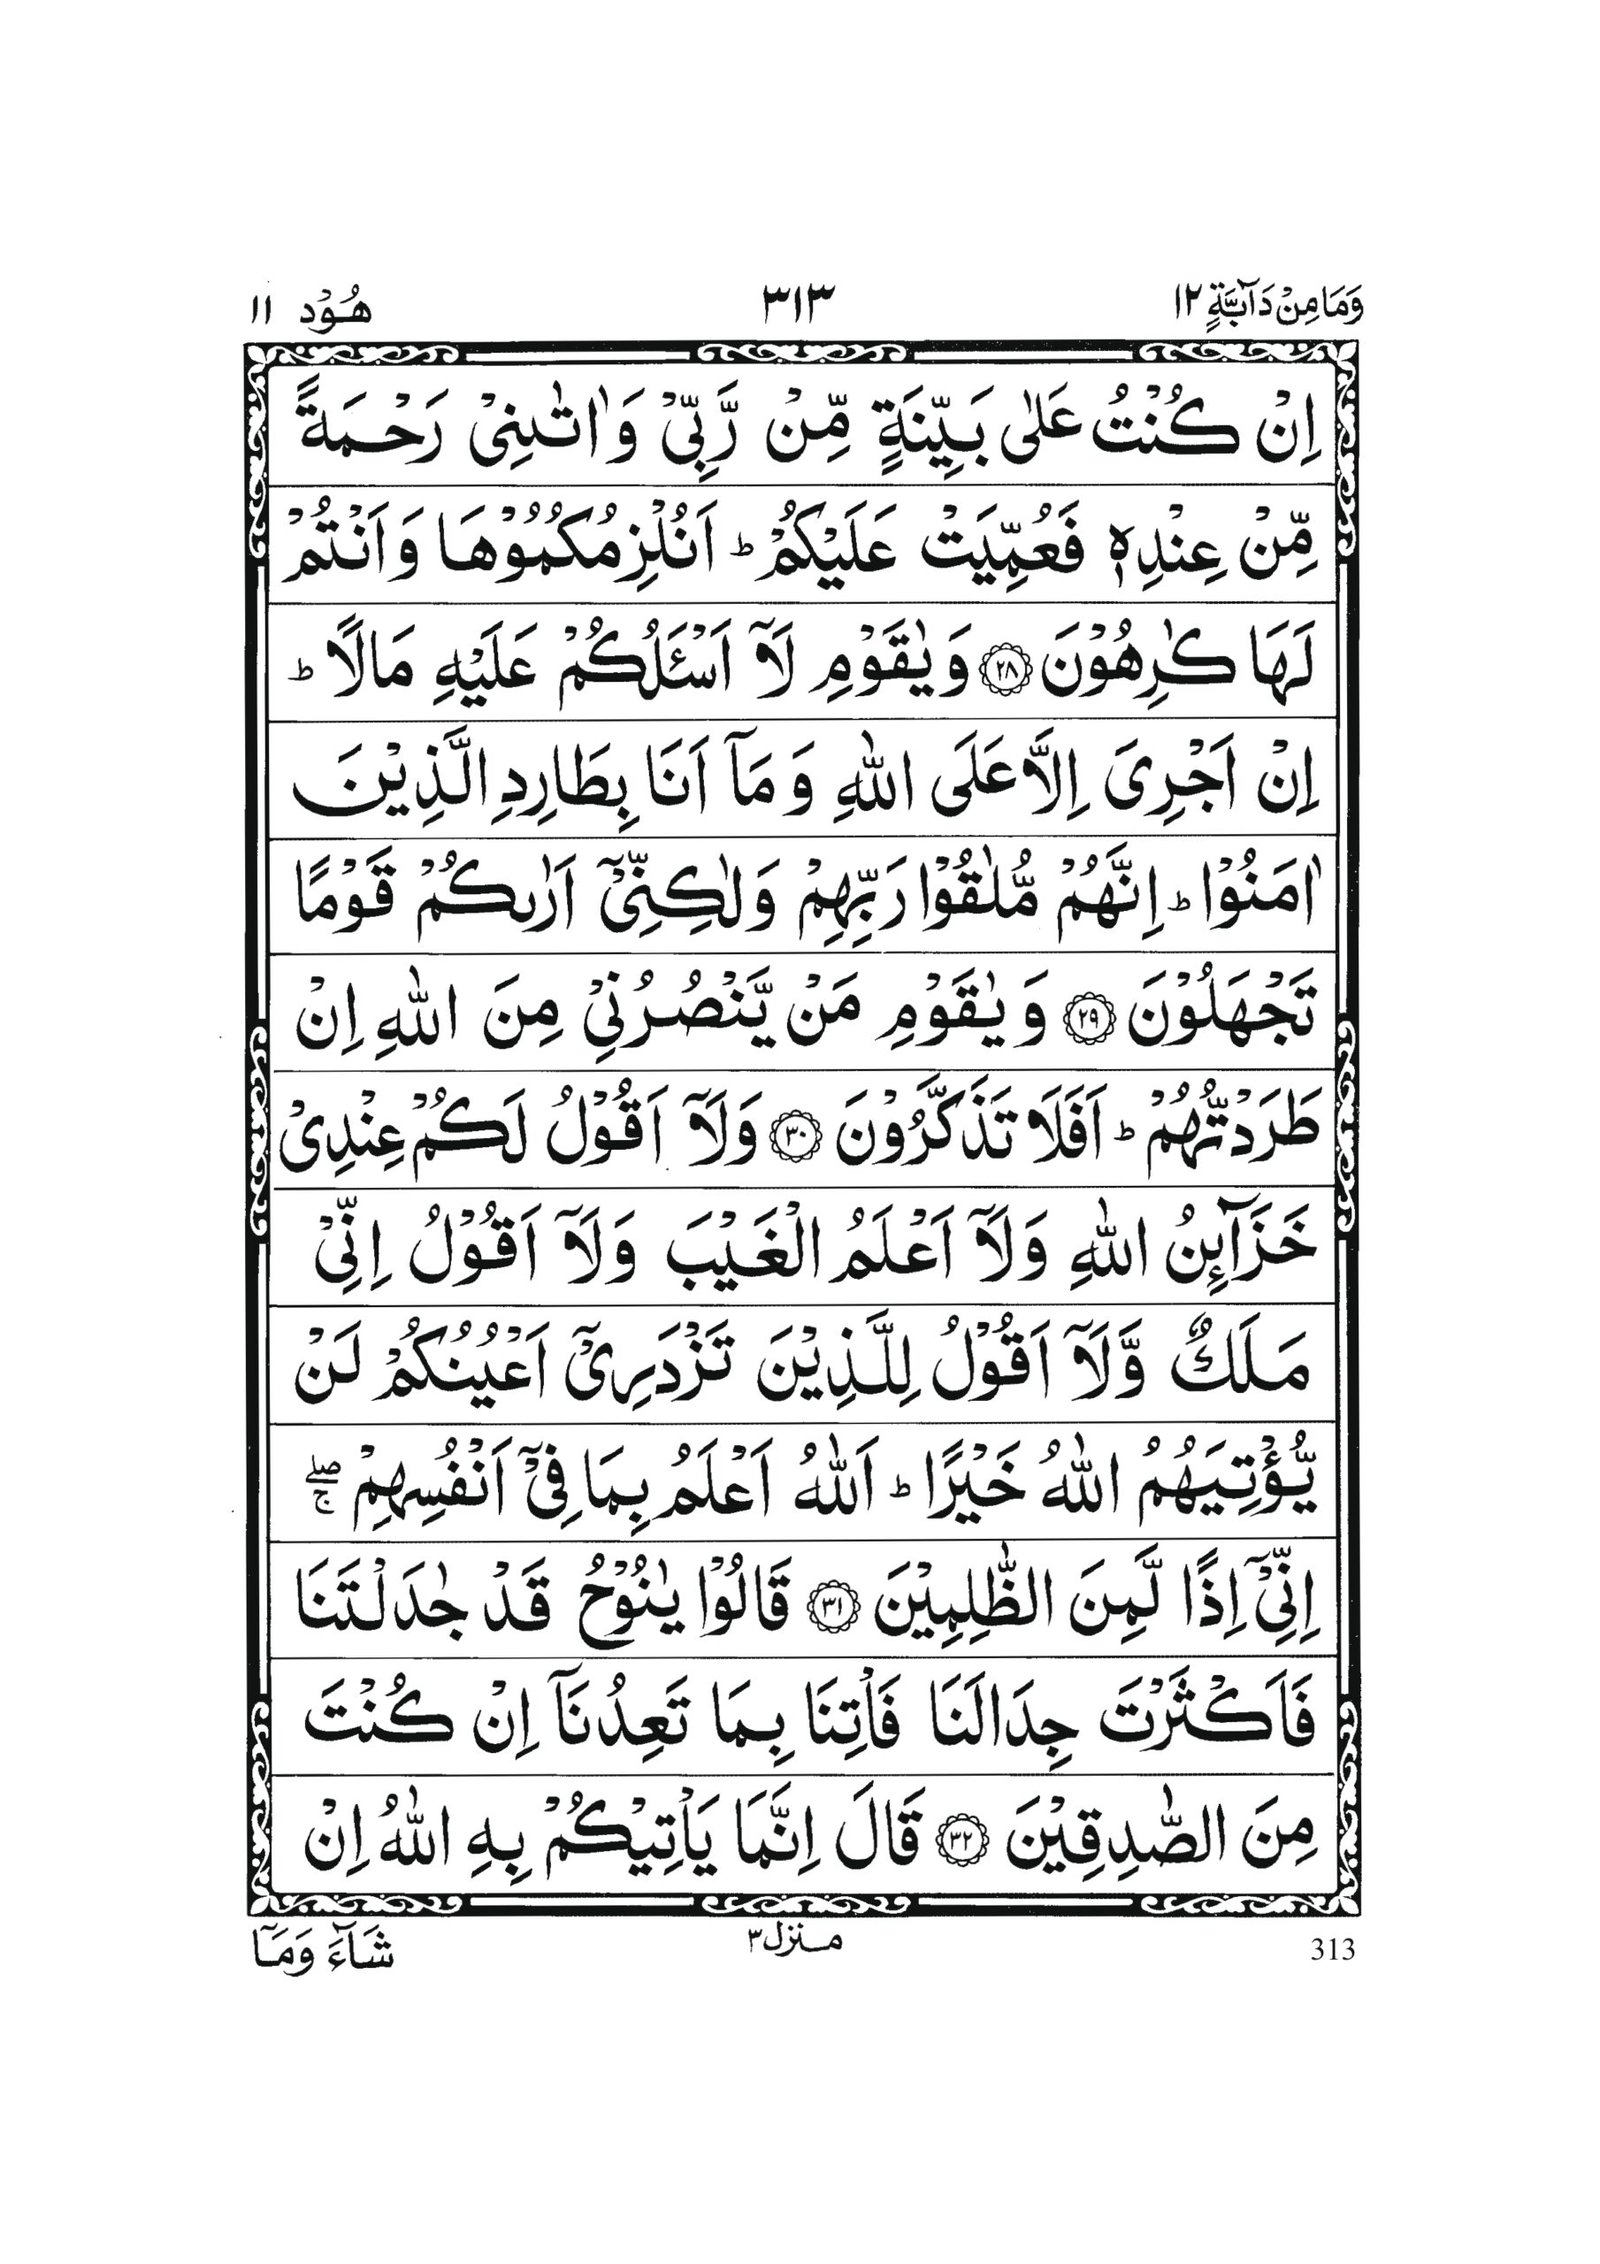 وَمَا مِنْ دَآبَّةٍ ١٢ ٣١٣ هُوْد ١١
اِنْ كُنْتُ عَلٰى بَيِّنَةٍ مِّنْ رَّبِّىْ وَاٰتٰىنِىْ رَحْمَةً
مِّنْ عِنْدِهٖ فَعُمِّيَتْ عَلَيْكُمْ ؕ اَنُلْزِمُكُمُوْهَا وَاَنْتُمْ
لَهَا كٰرِهُوْنَ ﴿٢٨﴾ وَيٰقَوْمِ لَاۤ اَسْئَلُكُمْ عَلَيْهِ مَالًا ؕ
اِنْ اَجْرِىَ اِلَّا عَلَى اللّٰهِ وَمَاۤ اَنَا بِطَارِدِ الَّذِيْنَ
اٰمَنُوْا ؕ اِنَّهُمْ مُّلٰقُوْا رَبِّهِمْ وَلٰكِنِّىْۤ اَرٰىكُمْ قَوْمًا
تَجْهَلُوْنَ ﴿٢٩﴾ وَيٰقَوْمِ مَنْ يَّنْصُرُنِىْ مِنَ اللّٰهِ اِنْ
طَرَدْتُّهُمْ ؕ اَفَلَا تَذَكَّرُوْنَ ﴿٣٠﴾ وَلَاۤ اَقُوْلُ لَكُمْ عِنْدِىْ
خَزَآئِنُ اللّٰهِ وَلَاۤ اَعْلَمُ الْغَيْبَ وَلَاۤ اَقُوْلُ اِنِّىْ
مَلَكٌ وَّلَاۤ اَقُوْلُ لِلَّذِيْنَ تَزْدَرِىْۤ اَعْيُنُكُمْ لَنْ
يُّؤْتِيَهُمُ اللّٰهُ خَيْرًا ؕ اَللّٰهُ اَعْلَمُ بِمَا فِىْۤ اَنْفُسِهِمْ ۖۚ
اِنِّىْۤ اِذًا لَّمِنَ الظّٰلِمِيْنَ ﴿٣١﴾ قَالُوْا يٰنُوْحُ قَدْ جٰدَلْتَنَا
فَاَكْثَرْتَ جِدَالَنَا فَاْتِنَا بِمَا تَعِدُنَاۤ اِنْ كُنْتَ
مِنَ الصّٰدِقِيْنَ ﴿٣٢﴾ قَالَ اِنَّمَا يَاْتِيْكُمْ بِهِ اللّٰهُ اِنْ
313 منزل٣ شَآءَ وَمَاۤ